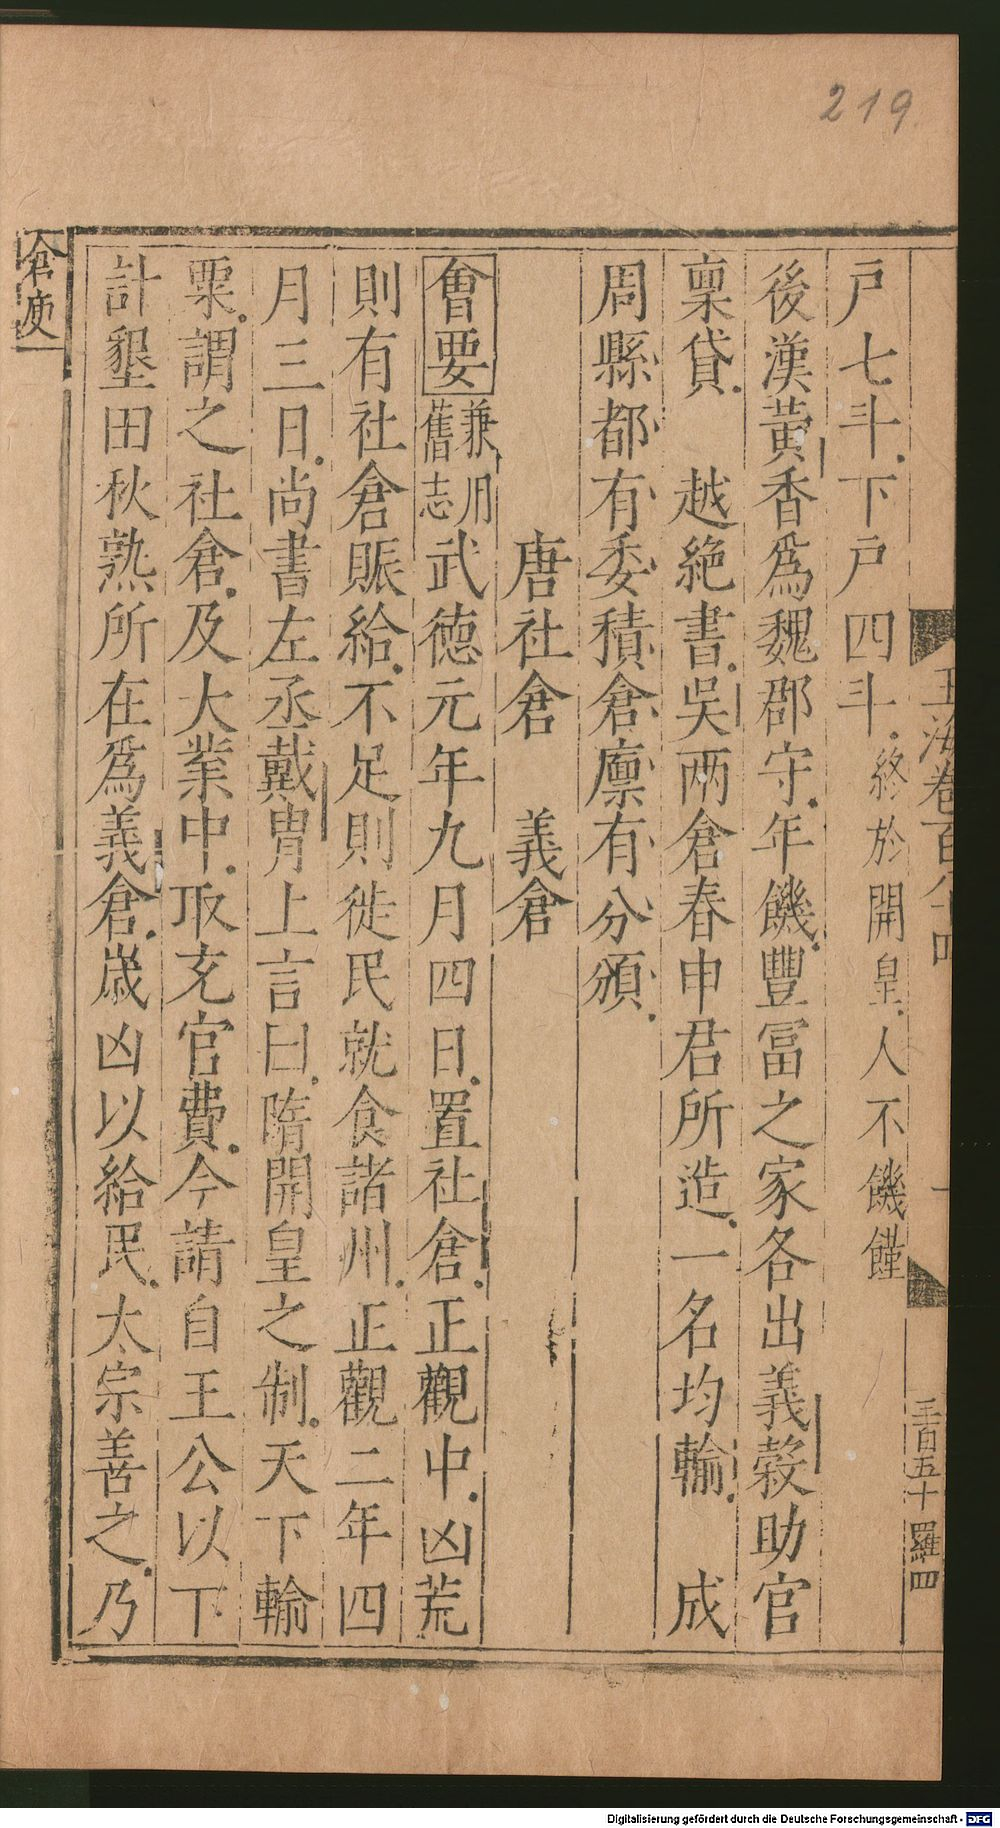 219
玉海卷百八十四
三百五十 羅四
戶七斗下戶四斗終於開皇人不饑饉
後漢黃香爲魏郡守年饑豐冨之家各出義榖助官
稟貸 越絶書吳两倉春申君所造一名均輸 成
周縣都有委積倉廪有分頒
唐社倉 義倉
會要兼用舊志武德元年九月四日置社倉正觀中凶荒
則有社倉賑給不足則徙民就食諸州正觀二年四
月三日尚書左丞戴胄上言曰隋開皇之制天下輸
粟謂之社倉及大業中取充官費今請自王公以下
計墾田秋熟所在爲義倉嵗凶以給民太宗善之乃
倉庾
Digitalisierung gefördert durch die Deutsche Forschungsgemeinschaft - DFG